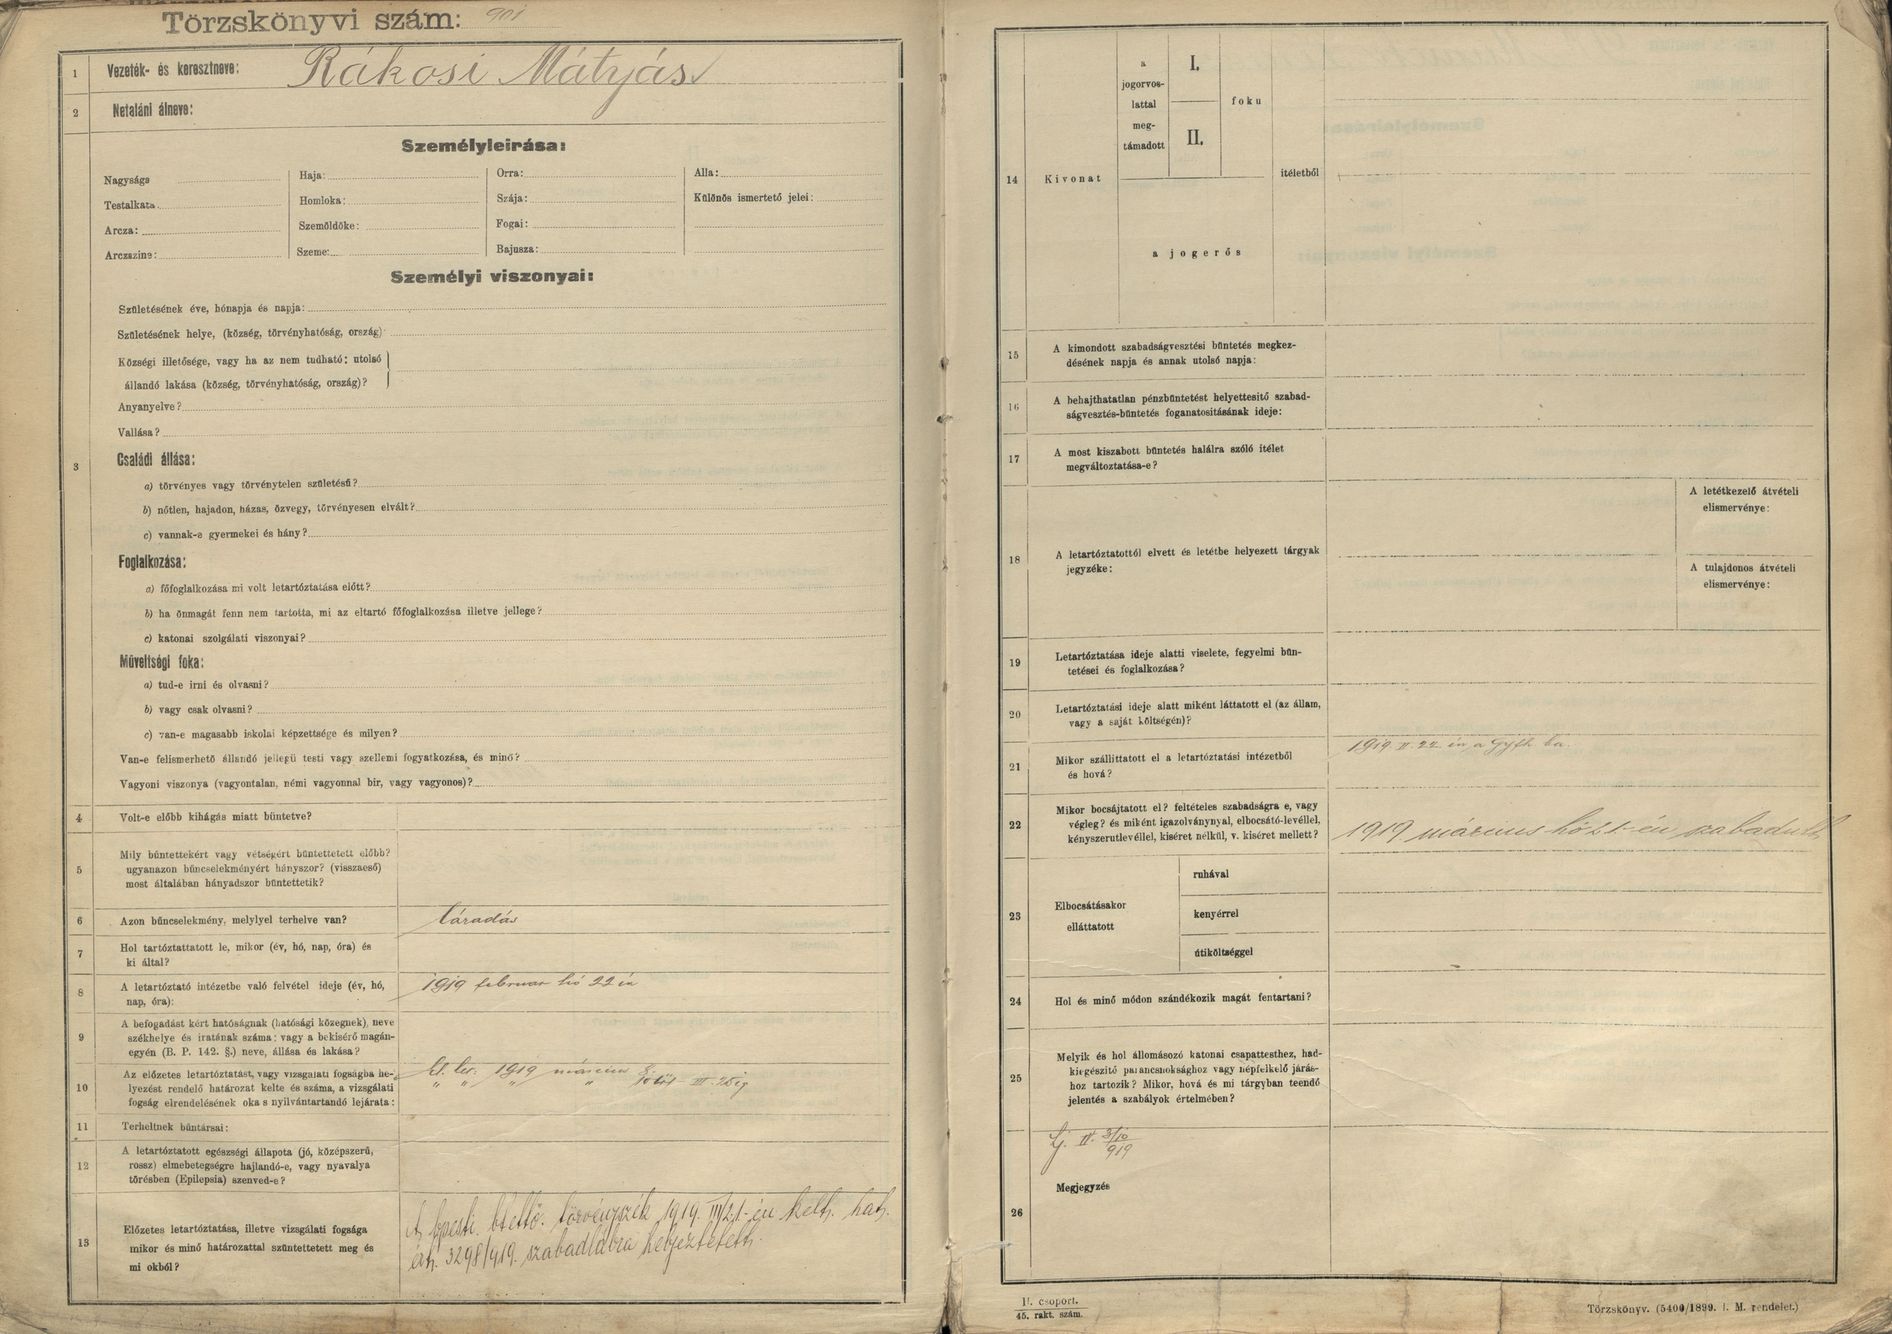 Törzskönyvi szám: 901
1 Vezeték- és keresztneve: Rákosi Mátyás
2 Netaláni álneve:
Személyleirása:
Nagysága
Testalkata
Arcza:
Arczszine:
Haja:
Homloka:
Szemöldöke:
Szeme:
Orra:
Szája:
Fogai:
Bajusza:
Alla:
Különös ismertető jelei:
Személyi viszonyai:
3
Születésének éve, hónapja és napja:
Születésének helye, (község, törvényhatóság, ország)
Községi illetősége, vagy ha az nem tudható: utolsó
állandó lakása (község, törvényhatóság, ország)?
Anyanyelve?
Vallása?
Családi állása:
a) törvényes vagy törvénytelen születésű?
b) nőtlen, hajadon, házas, özvegy, törvényesen elvált?
c) vannak-e gyermekei és hány?
Foglalkozása:
a) főfoglalkozása mi volt letartóztatása előtt?
b) ha önmagát fenn nem tartotta, mi az eltartó főfoglalkozása illetve jellege?
c) katonai szolgálati viszonyai?
Műveltségi foka:
a) tud-e irni és olvasni?
b) vagy csak olvasni?
c) van-e magasabb iskolai képzettsége és milyen?
Van-e felismerhető állandó jellegü testi vagy szellemi fogyatkozása, és minő?
Vagyoni viszonya (vagyontalan, némi vagyonnal bir, vagy vagyonos)?
4 Volt-e előbb kihágás miatt büntetve?
5 Mily büntettekért vagy vétségért büntettetett előbb?
ugyanazon büncselekményért hányszor? (visszaeső)
most általában hányadszor büntettetik?
6 Azon büncselekmény, melylyel terhelve van? Lázadás
7 Hol tartóztattatott le, mikor (év, hó, nap, óra) és
ki által?
8 A letartóztató intézetbe való felvétel ideje (év, hó,
nap, óra): 1919 februar hó 22 én
9 A befogadást kért hatóságnak (hatósági közegnek), neve
székhelye és iratának száma: vagy a bekisérő magán-
egyén (B. P. 142. §.) neve, állása és lakása?
10 Az előzetes letartóztatást, vagy vizsgálati fogságba he-
lyezést rendelő határozat kelte és száma, a vizsgálati
fogság elrendelésének oka s nyilvántartandó lejárata:
1919 március
11 Terheltnek büntársai:
12 A letartóztatott egészségi állapota (jó, középszerü,
rossz) elmebetegségre hajlandó-e, vagy nyavalya
törésben (Epilepsia) szenved-e?
13 Előzetes letartóztatása, illetve vizsgálati fogsága
mikor és minő határozattal szüntettetett meg és
mi okból?
A bpesti. btettő. törvényszék 1919. III/21-én kelt. hat.
3298/919. szabadlábra helyeztetett.
14 Kivonat
a
jogorvos-
lattal
meg-
támadott
I.
II.
foku
a jogerős
itéletből
15 A kimondott szabadságvesztési büntetés megkez-
désének napja és annak utolsó napja:
16 A behajthatatlan pénzbüntetést helyettesitő szabad-
ságvesztés-büntetés foganatositásának ideje:
17 A most kiszabott büntetés halálra szóló itélet
megváltoztatása-e?
18 A letartóztatottól elvett és letétbe helyezett tárgyak
jegyzéke:
A letétkezelő átvételi
elismervénye:
A tulajdonos átvételi
elismervénye:
19 Letartóztatása ideje alatti viselete, fegyelmi bün-
tetései és foglalkozása?
20 Letartóztatási ideje alatt miként láttatott el (az állam,
vagy a saját költségén)?
21 Mikor szállittatott el a letartóztatási intézetből
és hová?
1919. II. 22 én a Gyfh. ba.
22 Mikor bocsájtatott el? feltételes szabadságra e, vagy
végleg? és miként igazolványnyal, elbocsátó-levéllel,
kényszerutlevéllel, kiséret nélkül, v. kiséret mellett?
1919 március hó 21-én szabadult
23 Elbocsátásakor
elláttatott
ruhával
kenyérrel
útiköltséggel
24 Hol és minő módon szándékozik magát fentartani?
25 Melyik és hol állomásozó katonai csapattesthez, had-
kiegészitő parancsnoksághoz vagy népfelkelő járás-
hoz tartozik? Mikor, hová és mi tárgyban teendő
jelentés a szabályok értelmében?
26 Megjegyzés
II. csoport.
45. rakt. szám.
Törzskönyv. (5400/1899. I. M. rendelet.)